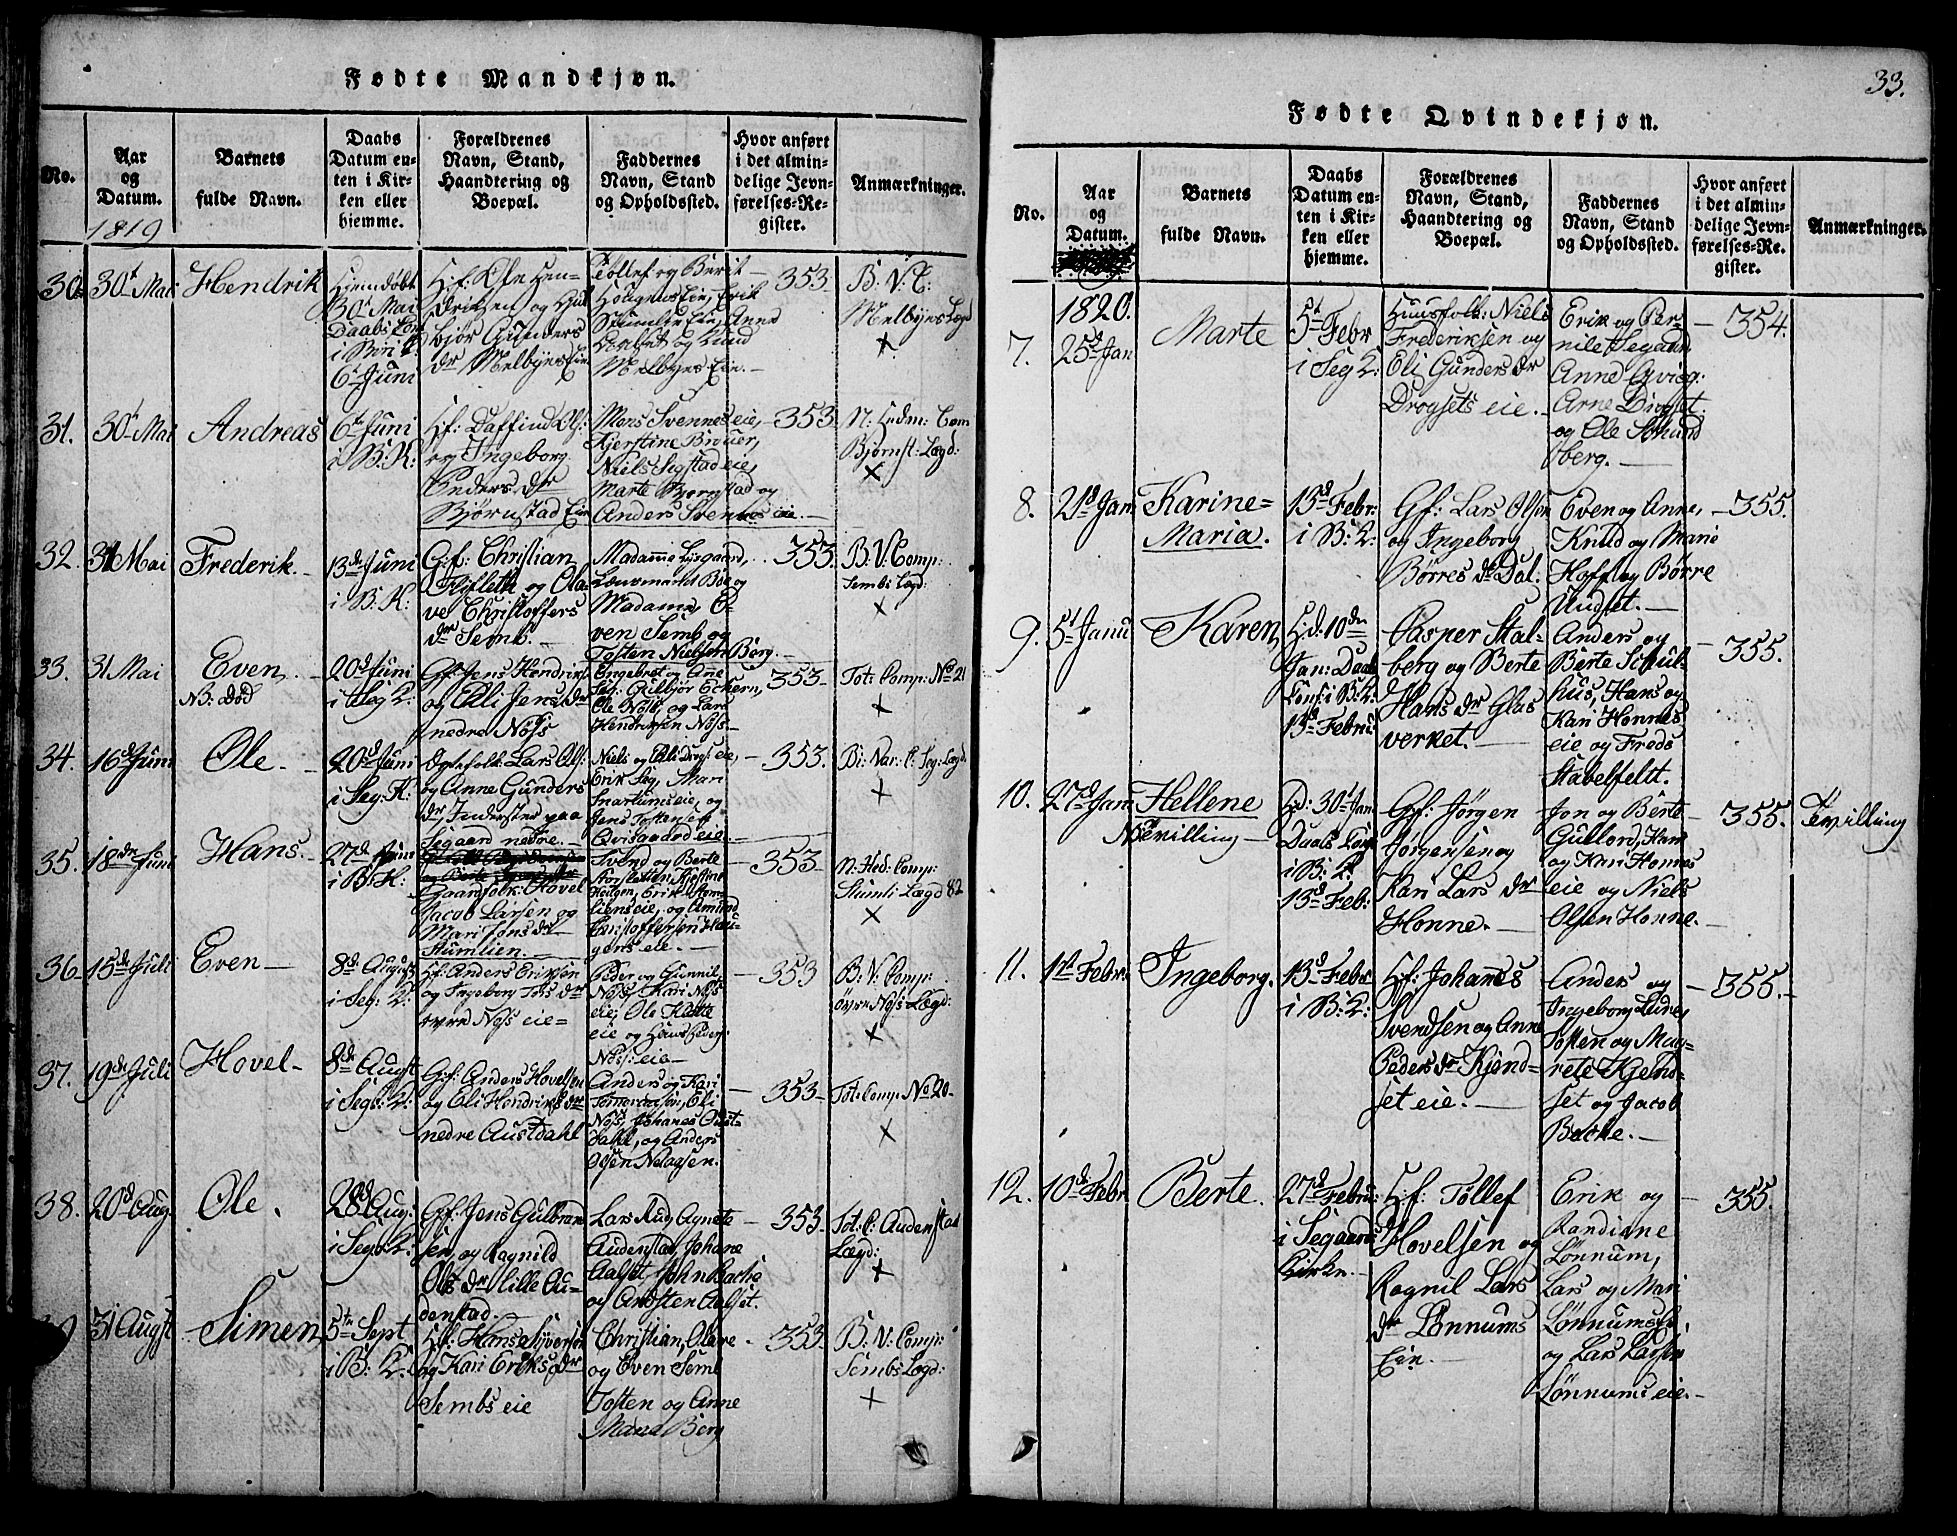 Fødte Mandkjøn.
No.
Aar
og
Datum.
1819
Barnets
fulde Navn.
Daabs
Datum en-
ten i Kir-
ken eller
hjemme.
Forældrenes
Navn, Stand,
Haandtering og
Boepæl.
Faddernes
Navn, Stand
og Opholdssted.
Hvor anført
i det almin-
delige Jevn-
førelses-Re-
gister.
Anmærkninger.
30.
30t Mai
Hendrik
Hjemdøbt
30t Mai
Daabs Conf
i Biri K:
6t Juni
Hf: Ole Hen-
driksen og
Gunders
dr Melbyes Eie
Tollef og Berit
Eie, Erik
Eie, Anne
og Knud
Melbyes Eie. —
353.
B. V. C:
Melbyes Lægd
×
31.
30t Mai
Andreas
6t Juni
i B: K:
Hf: Daffind Ols:
og Ingeborg
Anders dr
Bjørnstad Eie
Mors Svennes eie,
Kjerstine Bruer,
Niels Sigstad eie,
Marte Bjørnstad og
Anders Svennes eie. —
353.
N. Hedm: Com
Bjørnst: Lægd:
×
32.
31 Mai
Frederik. —
13de Juni
i B: K:
Gf: Christian
Kifleth og Ola-
ve Christoffers
dr Semb. —
Madamme Lysgaard,
Lænsmand Boe og
Madame, E-
ven Semb og
Tosten Nielsen Berg. —
353.
B. V. Comp:
Sembs Lægd:
×
33.
31 Mai
Even. —
NB: død
20d Juni
i Seg K:
Gf: Jens Hendriks
og Eli Jens dr
nedre Nøss
Engebret og Ane
Seg: Gulbjør Eckern,
Ole Nøss og Lars
Hendriksen Nøss —
353 —
Tot: Comp: No 21
×
34.
16d Juni
Ole. —
20d Juni
i Seg: K:
Ægtefolk: Lars Ols:
og Anne Gunders
dr Inderster paa
Segaard nedre. —
Niels og Eli Drogs: eie, —
Erik Seg, Mari
Snartums eie, og
Jens Tostensen
Qvisgaard eie. —
353.
Bi: Var: C: Seg: Lægd.
×
35.
18de Juni
Hans.
27d Juni
i B: K:
Gaardfolk: Hovel
Jacob Larsen og
Mari Jons dr
Stumlien. —
Svend og Berte
Kjerstine
Heltgen, Erik Stum-
liens eie, og Amund
Christoffersen Hau-
gens eie. —
353 —
N: Hed: Comp:
Stumli Lægd 82
×
36
15de Juli
Even —
8de August
i Seg: K:
Hf: Anders Eriksen
og Ingeborg Jons dr
øvre Nøss eie =
Peder og Gunnil
Nøss, Kari Nøss
eie, Ole Klette
eie og Hans Peders:
Nøss: eie —
353
B: V: Comp:
øvre Nøss Lægd:
×
37.
19de Juli
Hovel —
8de August
i Segs: K:
Gf: Anders Hovelsen
og Eli Hendriks dr
nedre Austdahl
Anders og Kari
Eli
Nøss, Johanes Oust-
dahl, og Anders
Olsen
353 —
Tot: Comp: No 20 —
×
38.
20d Aug.
Ole.
28d Aug:
i Seg: K:
Gf: Jens Gulbran
sen, og Ragnild
Ols dr Lille Au-
denstad. —
Lars Rud, Agnete
Audenstad, Johane
Aalset, John Bache
og Andsten Aalset.
353.
Tot: C: Audenstad
Lægd:
×
31 Augst
Simen
5te Sept
i B: K:
Hf: Hans Syversen
og Kari Eriks dr
Sembs eie
Christian, Olave
og Even Semb
Tosten og Anne
Maria Berg
353.
B: V: Comp:
Sembs Lægd:
×
33.
Fødte Qvindekjøn.
No.
Aar
og
Datum.
Barnets
fulde Navn.
Daabs
Datum en-
ten i Kir-
ken eller
hjemme.
Forældrenes
Navn, Stand,
Haandtering og
Boepæl.
Faddernes
Navn, Stand
og Opholdssted.
Hvor anført
i det almin-
delige Jevn-
førelses-Re-
gister.
Anmærkninger.
1820.
7.
25d Jan
Marte
5t Febr
i Seg K:
Huusfolk: Niels
Frederiksen og
Eli Gunders dr
Drogsets eie. —
Erik og Per-
nile Segaard
Anne Qvisg:
Arne Drogset
og Ole Smund
berg. —
354.
8.
21d Jan
Karine =
Maria.
13d Febr:
i B: K:
Gf: Lars Olsen
og Ingeborg
Børres dr Dal.
Even og Anne,
Knud og Marie
Hoff og Børre
Undset. —
355.
9.
5t Janu
Karen
Hd: 10de
Jan: Daabs
Conf: i B: K:
13d Febru:
Casper Stal-
berg og Berte
Hans dr Glas
verket. —
Anders og
Berte Schul-
hus, Hans og
Kari Honnes
eie og Freds
Stabelfeldt.
355.
10.
27d Jan
Hellene
NB Tvilling —
Hd: 30t Jan
Daabs Conf
i B: K:
13d Feb:
Gf: Jørgen
Jørgensen og
Kari Lars dr
Honne. —
Jon og Berte
Gullord, Hans
og Kari Honnes
eie og Niels
Olsen Honne. —
355.
Tvilling
11.
1st Febr:
Ingeborg.
13d Febr
i B: K:
Hf: Johanes
Svendsen og Anne
Peders dr Kjend-
set eie. —
Anders og
Ingeborg Leine,
Tosten og Mag-
rete Kjend-
set og Jacob
Bache. —
355. —
12.
10de Febr
Berte.
27d Febru:
i Segaard
Kirke —
Hf: Tollef
Hovelsen og
Ragnil Lars
dr Lønnums
Eie. —
Erik og
Randine
Lønnum,
Lars og Mari
Lønnumse:,
og Lars Larsen
Lønnums eie. —
355.